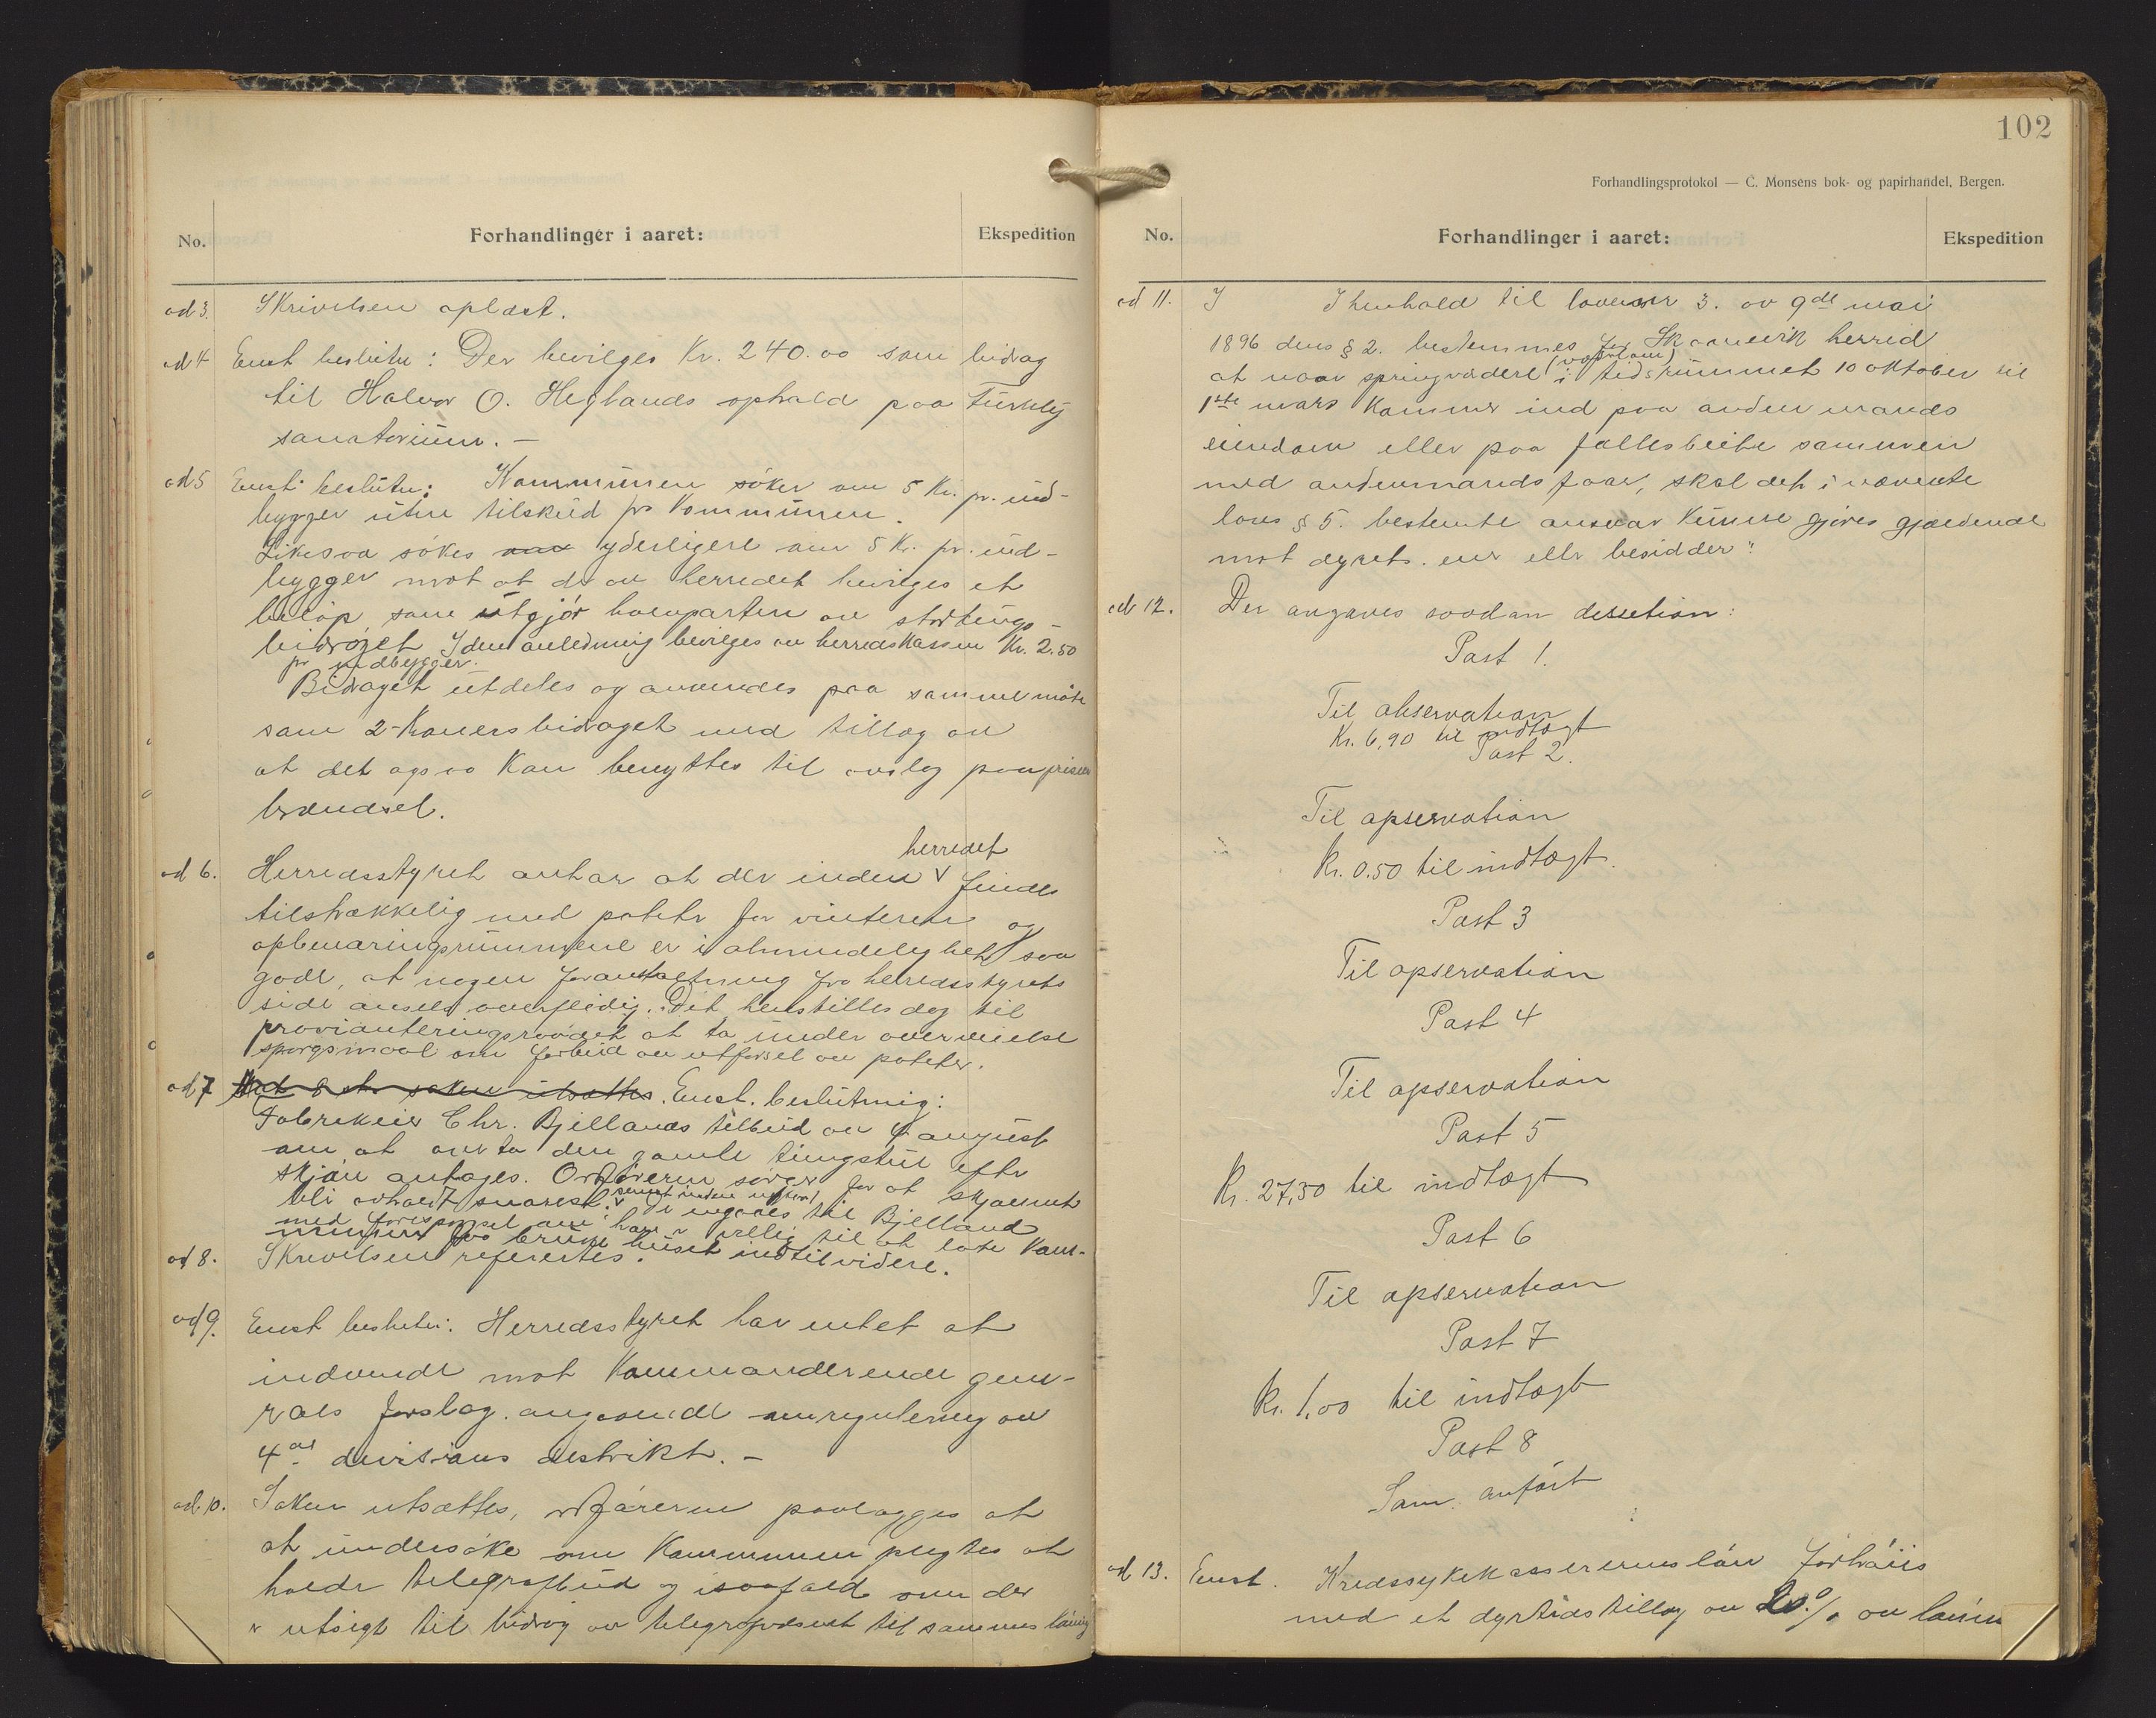 No.
Forhandlinger i aaret:
Ekspedition
ad 3. Skrivelsen oplæst.
ad 4 Enst beslutn: Der bevilges Kr. 240.00 som bidrag
til Halvor O. Heglands ophold paa Turkly
sanatorium. —
ad 5 Enst beslutn: Kommunen søker om 5 Kr. pr. ind-
bygger uten tilskud fra Kommunen.
Likesaa søkes yderligere om 5 Kr. pr. ind-
bygger mot at der av herredet bevilges et
beløp, som utgjör halvparten av stortings-
bidraget. I den anledning bevilges av herredskassen Kr. 2.50
pr indbygger.
Bidraget utdeles og anvendes paa samme måte
som 2-Kronersbidraget med tillæg av
at det ogsaa Kan benyttes til avslag paa prisen
brændsel.
ad 6. Herredsstyret antar at der inden herredet findes
tilstrækkelig med poteter for vinteren og
opbevaringsrummene er i almindelighet saa
gode, at nogen foranstaltning fra herredsstyrets
side ansees overflødig. Det henstilles dog til
provianteringsraadet at ta under overveielse
spørgsmaal om forbud av utførsel av poteter.
ad 7 Med 8 st. saken utsættes. Enst. beslutning:
Fabrikeier Chr. Bjellands tilbud av 4 august
om at overta den gamle tingstue efter
skjøn antages. Ordføreren sørger for at skjønnet
bli avholdt snarest. Det indgaaes til Bjelland
med forespørsel om han er villig til at late Kom-
munen faa bruke huset indtil videre.
ad 8. Skrivelsen refereertes.
ad 9. Enst beslutn: Herredsstyret har intet at
indvende mot Kommanderende gene-
rals forslag angaaende omregulering av
4de divisions distrikt. —
ad. 10. Saken utsættes, ordføreren paalægges at
at undersøke om Kommunen pligtes at
holde telegrafbud og isaafald om der
er utsigt til bidrag av telegrafvæsenet til sammes lønning
102
Forhandlingsprotokol — C. Monsens bok- og papirhandel, Bergen.
No.
Forhandlinger i aaret:
Ekspedition
ad 11. I I henhold til lovens nr 3. av 9de mai
1896 dens § 2. bestemmes for Skaanevik herred
at naar springvædere (vaarlam) i tidsrummet 10 oktober til
1ste mars Kommer ind paa anden mands
eiendom eller paa fællesbeite sammen
med andenmands faar, skal det i nævnte
lovs § 5. bestemte ansvar Kunne gjøres gjældende
mot dyrets eier eller besidder".
ad 12. Der avgaves saadan dessetion:
Post 1.
Til observation
Kr. 6,90 til indtægt
Post 2.
Til opservation
Kr. 0.50 til indtægt.
Post 3
Til opservation
Post 4
Til opservation
Post 5
Kr. 27,50 til indtægt
Post 6
Til opservation
Post 7
Kr. 1,00 til indtægt
Post 8
Som anført
ad 13. Enst. Kredssykekassererens løn forhøies
med et dyrtidstillæg av 20% av lønnen